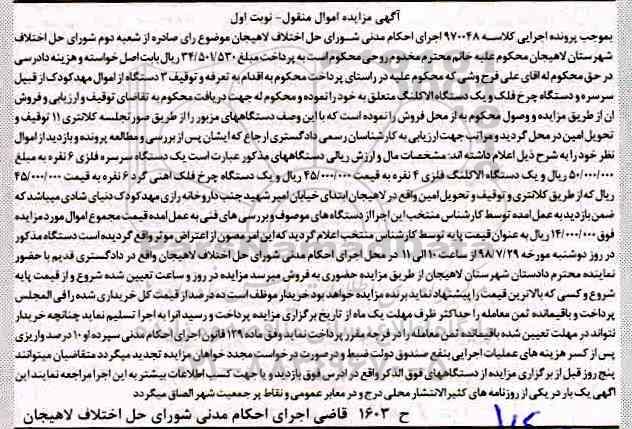 آگهی مزایده اموال منقول- نوبت اول
بموجب پرونده اجرایی کلاسه ۹۷۰۰۴۸ اجرای احکام مدنی شورای حل اختلاف لاهیجان موضوع رای صادره از شعبه دوم شورای حل اختلاف
شهرستان لاهیجان محکوم علیه خانم محترم مخدوم روحی محکوم است به پرداخت مبلغ ۳۴/۵۰۱/۵۳۰ ریال بابت اصل خواسته و هزینه دادرسی
در حق محکوم له آقای علی فرج وشی که محکوم علیه در راستای پرداخت محکوم به اقدام به تعرفه و توقیف ۳ دستگاه از اموال مهدکودک از قبیل
سرسره و دستگاه چرخ فلک و یک دستگاه الاکلنگ متعلق به خود را نموده و محکوم له جهت دریافت محکوم به تقاضای توقیف و ارزیابی و فروش
آن از طریق مزایده و وصول محکوم به از محل فروش را نموده است که با این وصف دستگاههای مزبور را از طریق صورتجلسه کلانتری ۱۱ توقیف و
تحویل امین در محل گردید و مراتب جهت ارزیابی به کارشناس رسمی دادگستری ارجاع که ایشان پس از بررسی و مطالعه پرونده و بازدید از اموال
نظر خود را به شرح ذیل اعلام داشته اند: مشخصات مال و ارزش ریالی دستگاههای مذکور عبارت است یک دستگاه سرسره فلزی ۶ نفره به مبلغ
۵۰/۰۰۰/۰۰۰ ریال و یک دستگاه الاکلنگ فلزی ۴ نفره به قیمت ۴۵/۰۰۰/۰۰۰ ریال و یک دستگاه چرخ فلک آهنی گرد ۶ نفره به قیمت ۴۵/۰۰۰/۰۰۰
ریال که از طریق کلانتری و توقیف و تحویل امین واقع در لاهیجان ابتدای خیابان امیر شهید جنب داروخانه رازی مهدکودک دنیای شادی میباشد که
ضمن بازدید به عمل آمده توسط کارشناس منتخب این اجرا از دستگاه های موصوف و بررسی های فنی به عمل آمده قیمت مجموع اموال مورد مزایده
فوق ۱۴/۰۰۰/۰۰۰ ریال به عنوان قیمت پایه توسط کارشناس منتخب اعلام گردید که این امر مصون از اعتراض موثر واقع گردیده است دستگاه مذکور
در روز دوشنبه مورخه ۹۸/۷/۲۹ از ساعت ۱۰ الی ۱۱ در محل اجرای احکام مدنی شورای حل اختلاف لاهیجان واقع در دادگستری قدیم با حضور
نماینده محترم دادستان شهرستان لاهیجان از طریق مزایده حضوری به فروش میرسد مزایده در روز و ساعت تعیین شده شروع و از قیمت پایه
شروع و کسی که بالاترین قیمت را پیشنهاد نماید برنده مزایده خواهد بود خریدار موظف است ده درصد از قیمت کل خریداری شده را فی المجلس
پرداخت و باقیمانده ثمن معامله را حداکثر ظرف مهلت یک ماه از تاریخ برگزاری مزایده پرداخت و رسید آنرا به اجرا تسلیم نماید چنانچه خریدار
نتواند در مهلت تعیین شده باقیمانده ثمن معامله را در فرجه مقرر پرداخت نماید وفق ماده ۱۲۹ قانون اجرای احکام مدنی سپرده او ۱۰ درصد واریزی
پس از کسر هزینه های عملیات اجرایی بنفع صندوق دولت ضبط و در صورت درخواست مجدد خواهان مزایده تجدید میگردد متقاضیان میتوانند
پنج روز قبل از برگزاری مزایده از دستگاههای فوق الذکر واقع در آدرس فوق بازدید و یا جهت کسب اطلاعات بیشتر به این اجرا مراجعه نمایند این
آگهی یک بار در یکی از روزنامه های کثیرالانتشار محلی درج و در معابر عمومی و نقاط پر جمعیت شهر الصاق میگردد
ح ۱۶۰۳ قاضی اجرای احکام مدنی شورای حل اختلاف لاهیجان